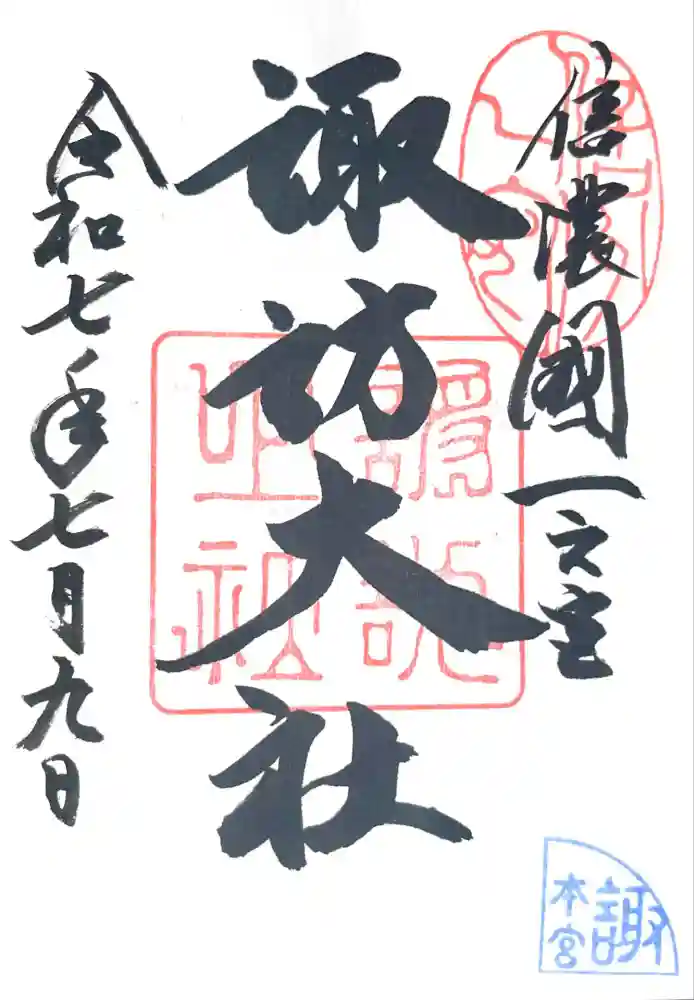 信濃國一之宮
諏訪大社
令和七年七月九日
諏
本宮